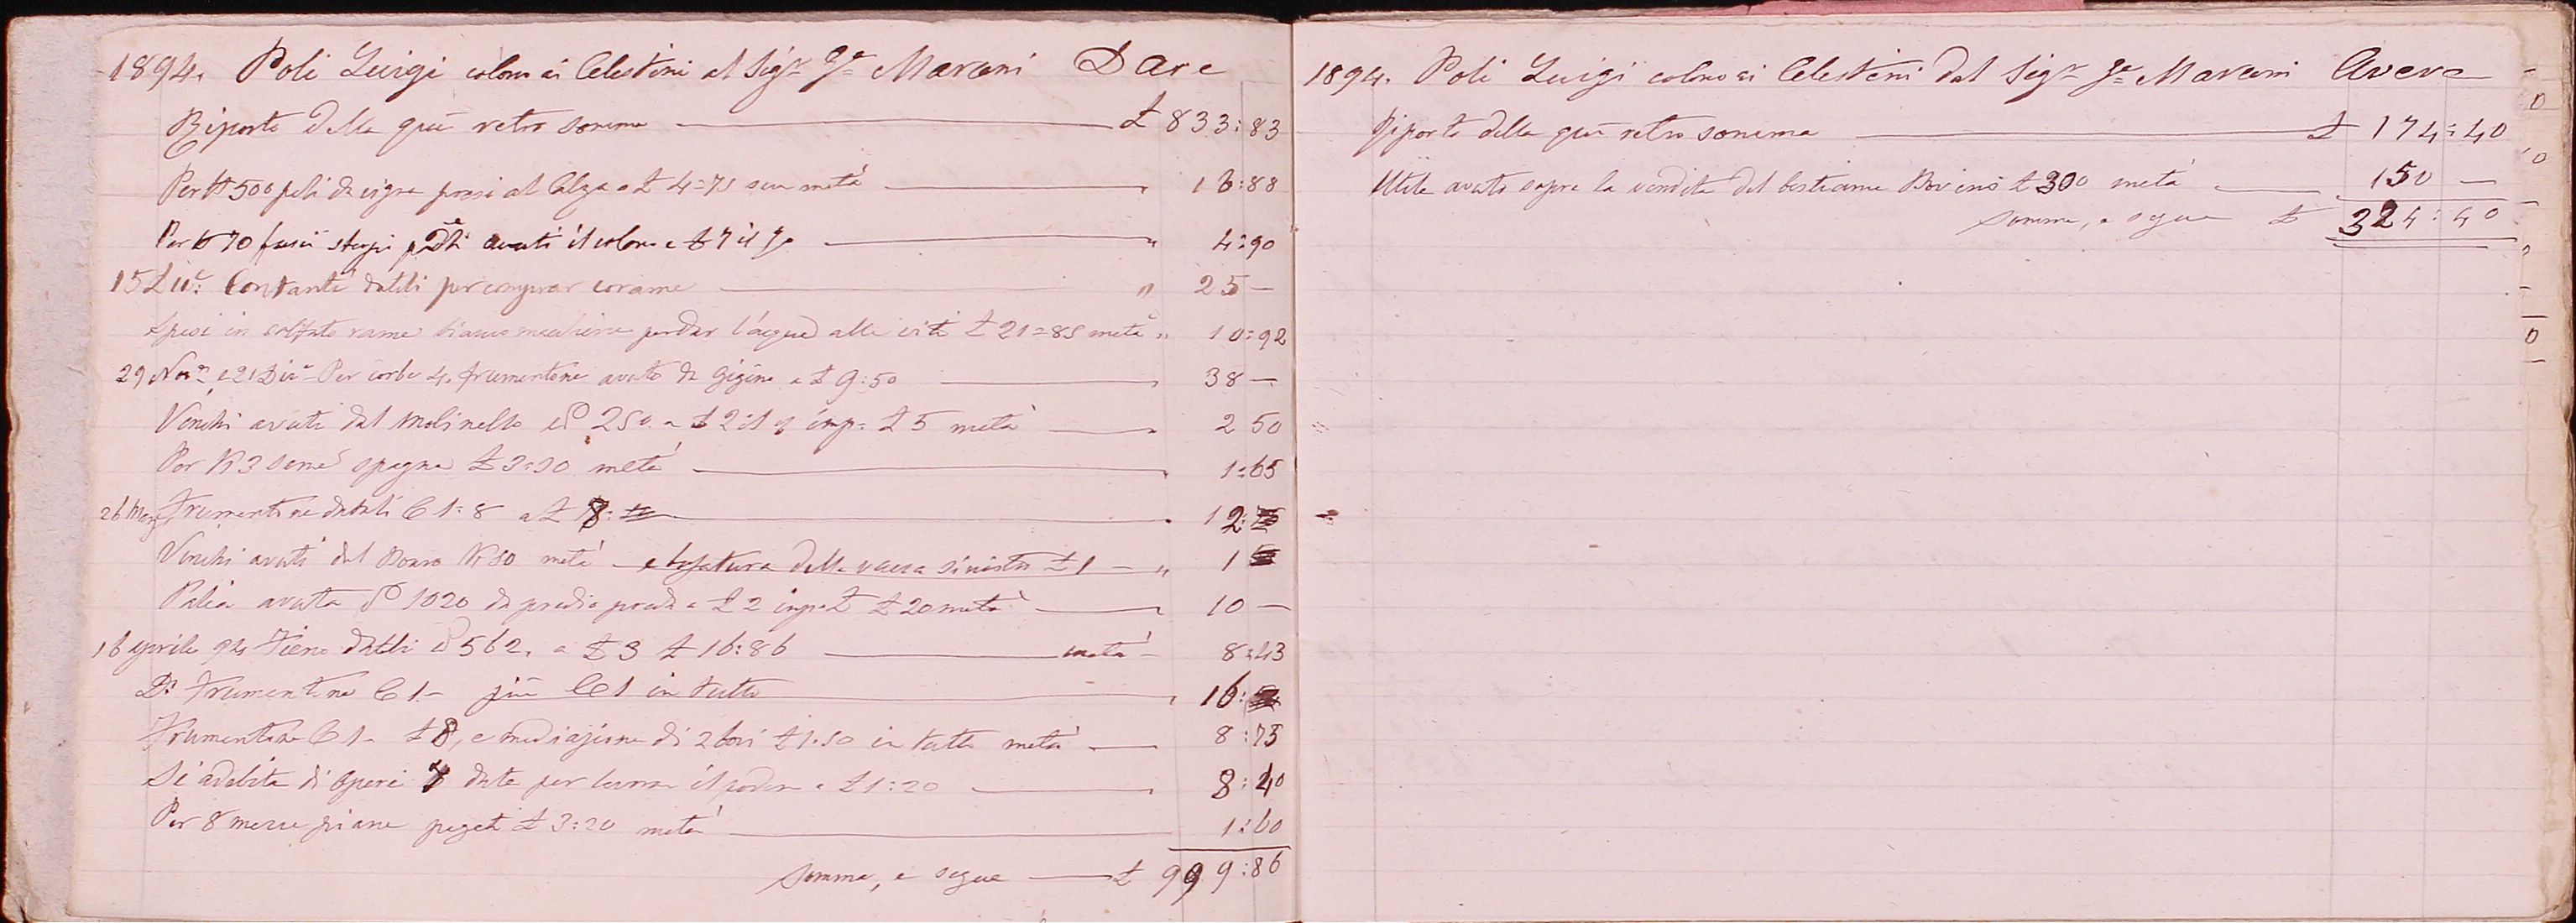 1894. Poli Luigi colono ai Celestini al Sigr. Gte Marconi Dare
Riporto della quì retro somma £ 833:83
Per N 500 pali da vigna presi al Calza a £ 4=75 sua metà " 16:88
Per N 70 fascii avuti il colono a £ 7 il % " 4:90
15 Dic: Contante datili per comprar corame " 25 —
Spesi in solfato rame per dar l'acqua alle viti £ 21=85 metà " 10:92
29 Nov. e 21 Dic. Per corbe 4. frumentone avuto da Gigino a £ 9:50 38 —
Vinchi avuti dal Molinello 250. a £ 2 il % imp. £ 5 metà 2 50
Per K 3 seme spagna £ 3=30 metà 1:65
26 Marzo Frumentone datoli C 1:8 a £ 8: 12:
Vinchi avuti dal K 50 metà — della vacca sinistra £ 1 — " 1
Palia avuta 1020 da a £ 2 £ 20 metà 10 —
16 aprile 94 Fieno datoli 562. a £ 3 £ 16:86 metà 8:43
Do. Frumentone C 1. più C 1 in tutto 16:
Frumentone C 1. £ 8, e mediazione di 2 bovi £ 1.50 in tutto metà 8:75
Si addebita di opere 7 date per il podere a £ 1:20 8:40
Per 8 £ 3:20 metà 1:60
Somma, e segue £ 999:86
1894. Poli Luigi colono ai Celestini dal Sigr. Gte Marconi Avere
Riporto della quì retro somma £ 174:40
Utile avuto sopra la vendita del bestiame Bovino £ 300 metà 150 —
somma, e segue £ 324:40